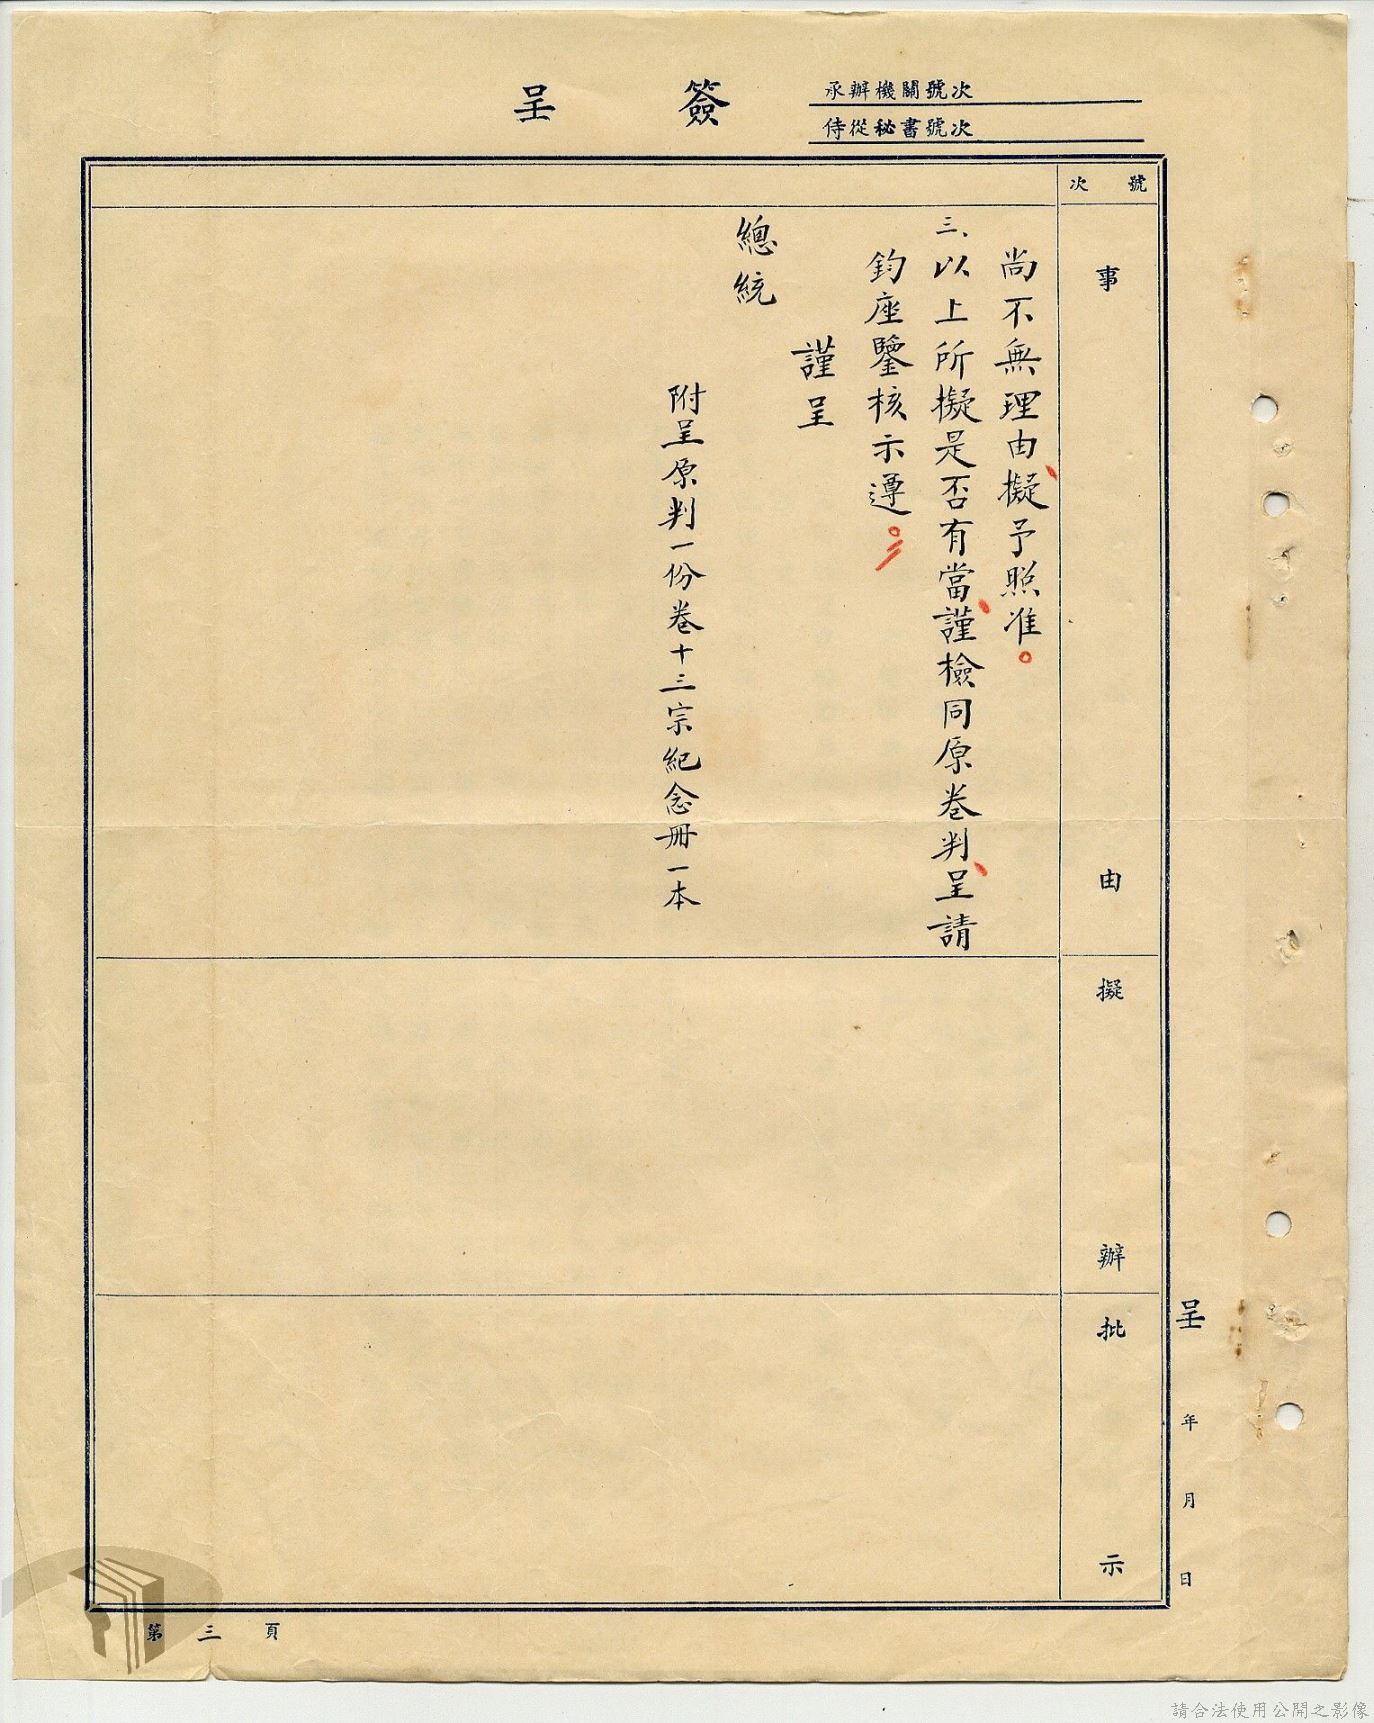 簽呈
承辦機關號次
侍從秘書號次
號次
事由
擬辦
批示
尚不無理由擬予照准。
三、以上所擬是否有當謹檢同原卷判呈請
鈞座鑒核示遵。
謹呈
總統
附呈原判一份卷十三宗紀念冊一本
呈 年 月 日
第三頁
請合法使用公開之影像